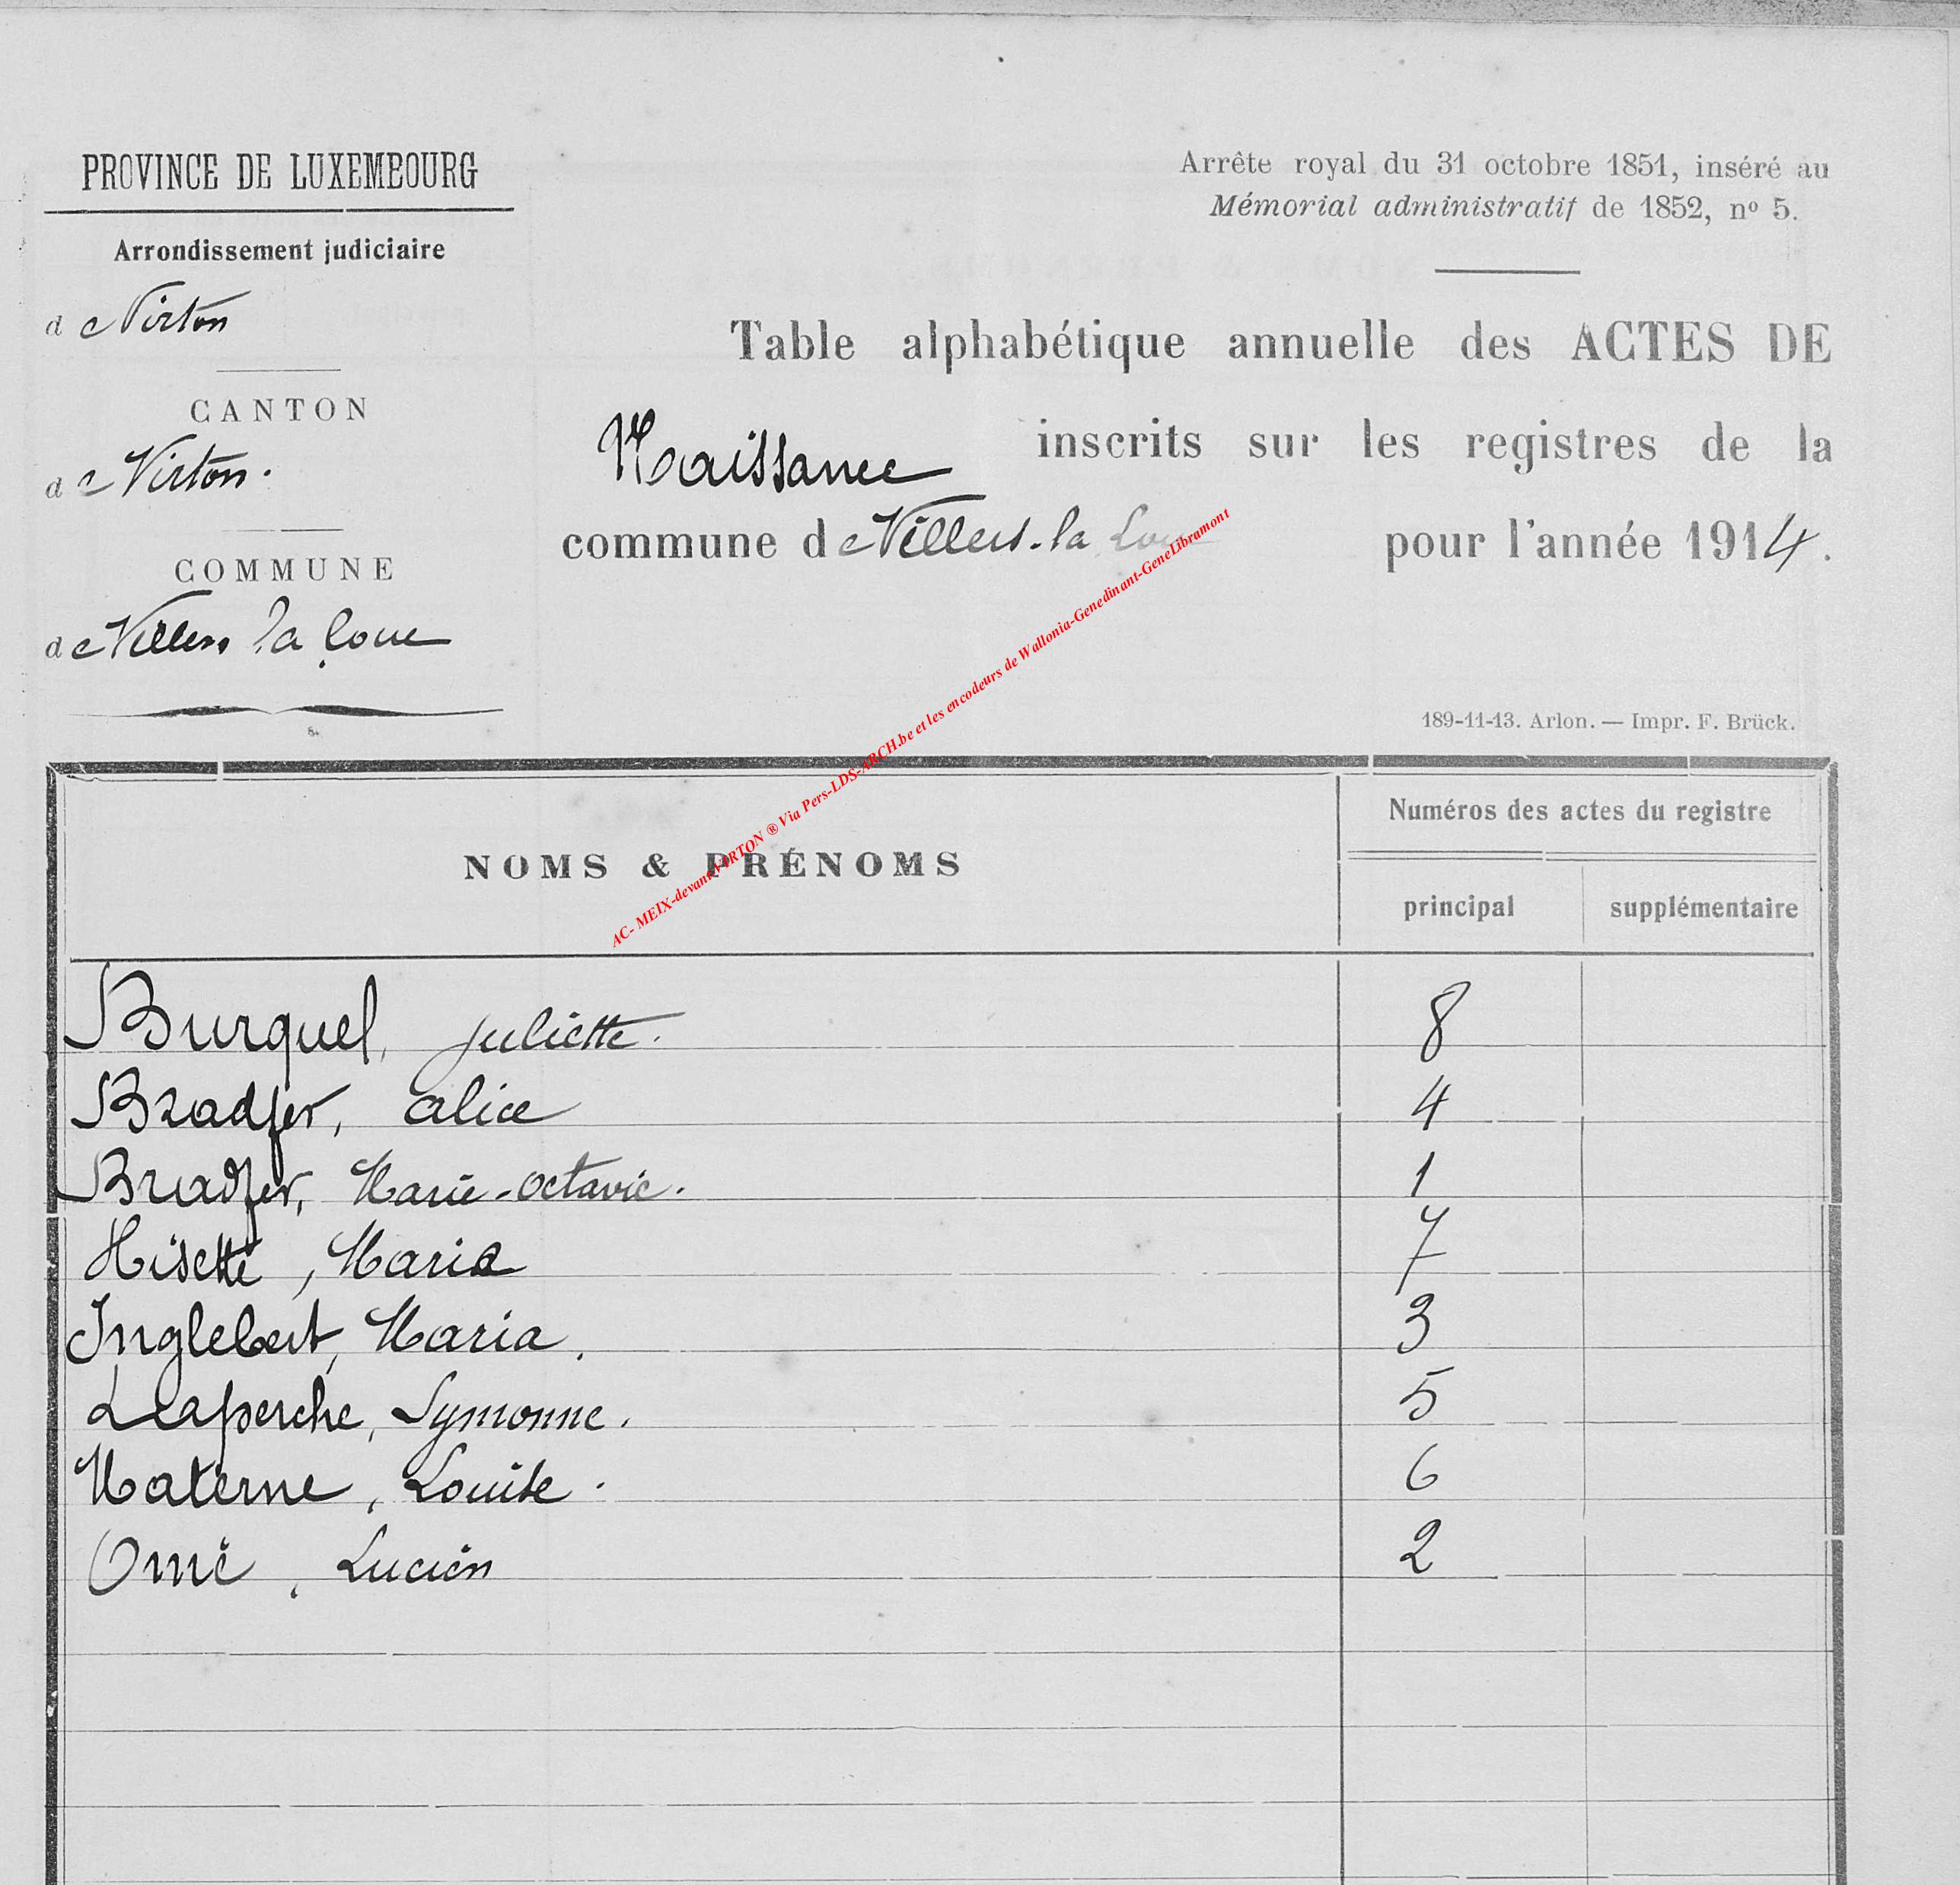 PROVINCE DE LUXEMBOURG
Arrondissement judiciaire
de Virton
CANTON
de Virton.
COMMUNE
de Villers la Loue
Arrête royal du 31 octobre 1851, inséré au
Mémorial administratif de 1852, nº 5.
Table alphabétique annuelle des ACTES DE
Naissance inscrits sur les registres de la
commune de Villers-la Loue pour l'année 1914.
189-11-13. Arlon. — Impr. F. Brück.
AC- MEIX-devant-VIRTON ® Via Pers-LDS-ARCH.be et les encodeurs de Wallonia-Genedinant-GeneLibramont
NOMS & PRÉNOMS
Numéros des actes du registre
principal supplémentaire
Burquel, Juliette. 8
Bradfer, Alice 4
Bradfer, Marie-Octavie. 1
Hisette, Maria 7
Inglebert, Maria. 3
Laperche, Symonne. 5
Materne, Louise. 6
Omé, Lucien 2